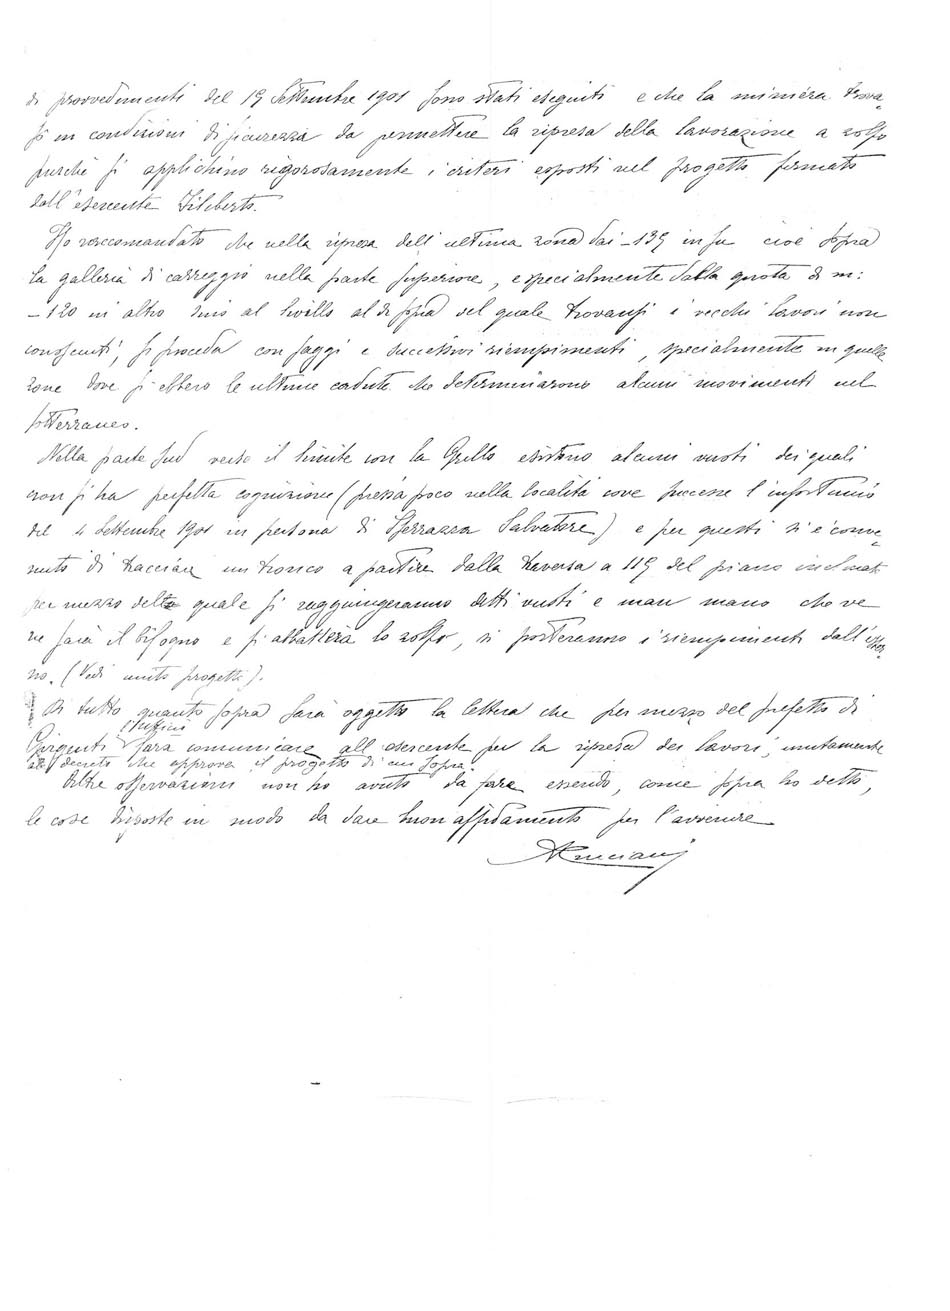 di provvedimenti del 19 Settembre 1901 sono stati eseguiti e che la miniera trova-
si in condizioni di sicurezza da permettere la ripresa della lavorazione a zolfo
purchè si applichino rigorosamente i criteri esposti nel progetto firmato
dall'esercente Filiberto.
Ho raccomandato che nella ripresa dell'ultima zona dai -139 in su cioè sopra
la galleria di carreggio nella parte superiore, e specialmente dalla quota di m:
-120 in altro sino al livello al di sopra del quale trovansi i vecchi lavori non
conosciuti, si proceda con saggi e successivi riempimenti, specialmente in quelle
zone dove si ebbero le ultime cadute che determinarono alcuni movimenti nel
sotterraneo.
Nella parte Sud verso il limite con la Grillo esistono alcuni vuoti dei quali
non si ha perfetta cognizione (pressa poco nella località ove successe l'infortunio
del 4 Settembre 1901 in persona di Sferrazza Salvatore) e per questi si è conve-
nuto di tracciare un tronco a partire dalla traversa a 119 del piano inclinato
per mezzo del quale si raggiungeranno detti vuoti e man mano che ve
ne sarà il bisogno e si abbatterà lo zolfo, si porteranno i riempimenti dall'ester-
no. (Vedi unito progetto).
Di tutto quanto sopra sarà oggetto la lettera che per mezzo del prefetto di
l'Ufficio
Girgenti farà comunicare all'esercente per la ripresa dei lavori, unitamente
al decreto che approva il progetto di cui sopra.
Altre osservazioni non ho avuto da fare essendo, come sopra ho detto,
le cose disposte in modo da dare buon affidamento per l'avvenire